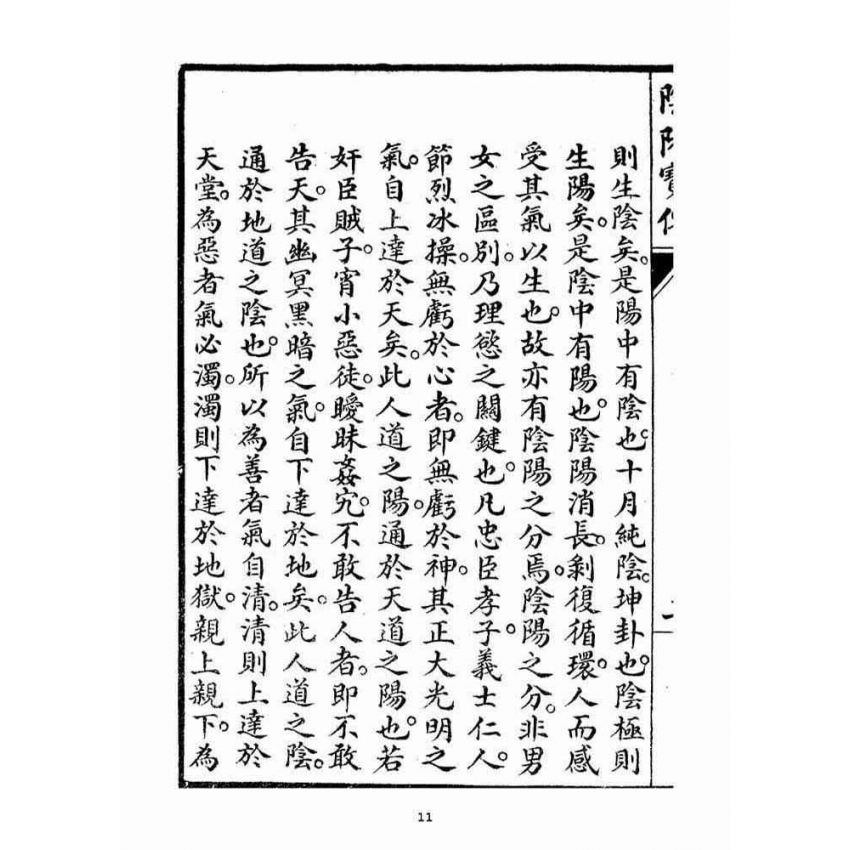 則生陰矣。是陽中有陰也。十月純陰。坤卦也。陰極則
生陽矣。是陰中有陽也。陰陽消長。剝復循環。人而感
受其氣以生也。故亦有陰陽之分焉。陰陽之分。非男
女之區別。乃理慾之關鍵也。凡忠臣孝子。義士仁人。
節烈冰操。無虧於心者。即無虧於神。其正大光明之
氣。自上達於天矣。此人道之陽。通於天道之陽也。若
奸臣賊子。宵小惡徒。曖昧姦宄。不敢告人者。即不敢
告天。其幽冥黑暗之氣。自下達於地矣。此人道之陰。
通於地道之陰也。所以為善者氣自清。清則上達於
天堂。為惡者氣必濁。濁則下達於地獄。親上親下。為
11